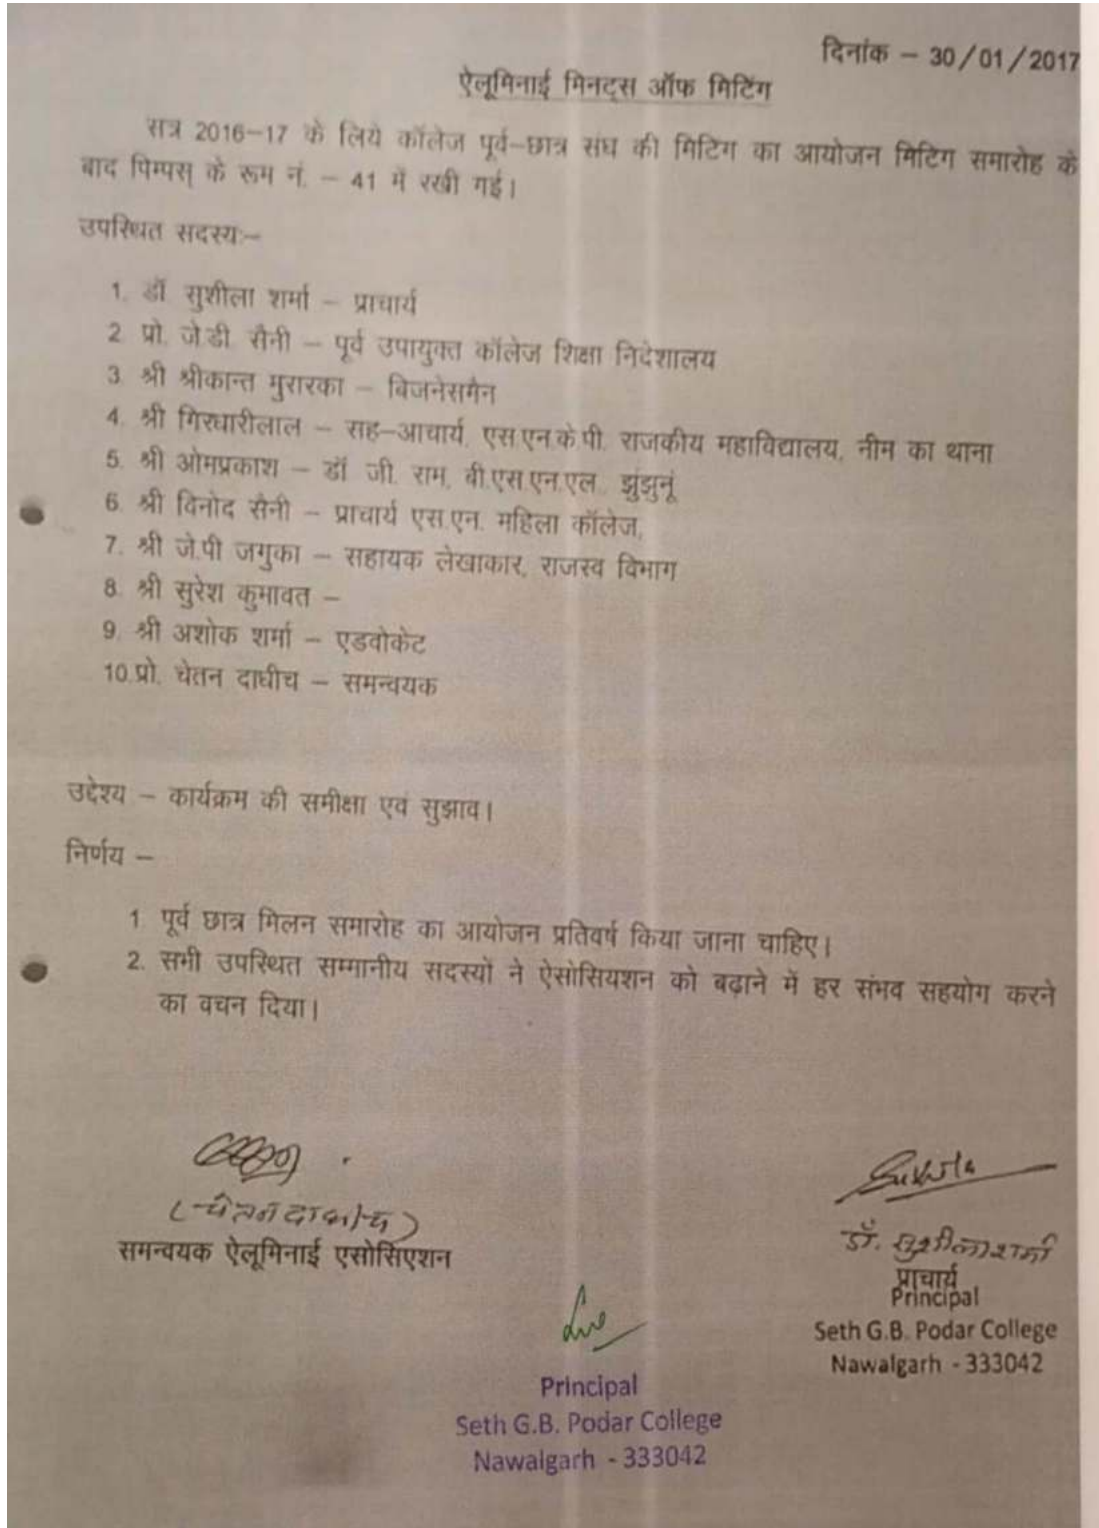 दिनांक – 30/01/2017
ऐलूमिनाई मिनट्स ऑफ मिटिंग
सत्र 2016–17 के लिये कॉलेज पूर्व–छात्र संघ की मिटिग का आयोजन मिटिग समारोह के
बाद पिम्पस् के रूम नं. – 41 में रखी गई।
उपस्थित सदस्यः–
1. डॉ. सुशीला शर्मा – प्राचार्य
2. प्रो. जे.डी. सैनी – पूर्व उपायुक्त कॉलेज शिक्षा निदेशालय
3. श्री श्रीकान्त मुरारका – बिजनेसमैन
4. श्री गिरधारीलाल – सह–आचार्य, एस.एन.के.पी. राजकीय महाविद्यालय, नीम का थाना
5. श्री ओमप्रकाश – डॉ. जी. राम, बी.एस.एन.एल., झुंझुनूं
6. श्री विनोद सैनी – प्राचार्य एस.एन. महिला कॉलेज,
7. श्री जे.पी जगुका – सहायक लेखाकार, राजस्व विभाग
8. श्री सुरेश कुमावत –
9. श्री अशोक शर्मा – एडवोकेट
10.प्रो. चेतन दाधीच – समन्वयक
उद्देश्य – कार्यक्रम की समीक्षा एवं सुझाव।
निर्णय –
1. पूर्व छात्र मिलन समारोह का आयोजन प्रतिवर्ष किया जाना चाहिए।
2. सभी उपस्थित सम्मानीय सदस्यों ने ऐसोसियशन को बढ़ाने में हर संभव सहयोग करने
का वचन दिया।
(चेतन दाधीच)
समन्वयक ऐलूमिनाई एसोसिएशन
डॉ. सुशीला शर्मा
प्राचार्य
Principal
Seth G.B. Podar College
Nawalgarh - 333042
Principal
Seth G.B. Podar College
Nawalgarh - 333042